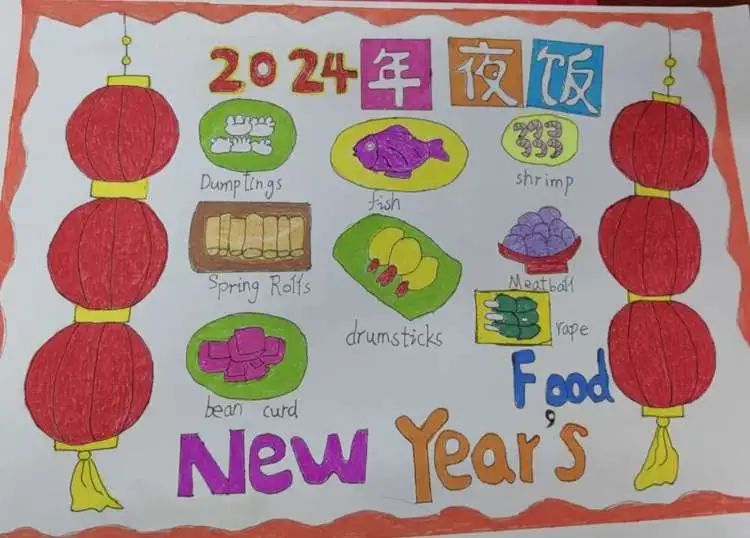 2024年夜饭
Dumptings
fish
shrimp
Spring Rolls
drumsticks
Meatball
rape
bean curd
Food
New Year's